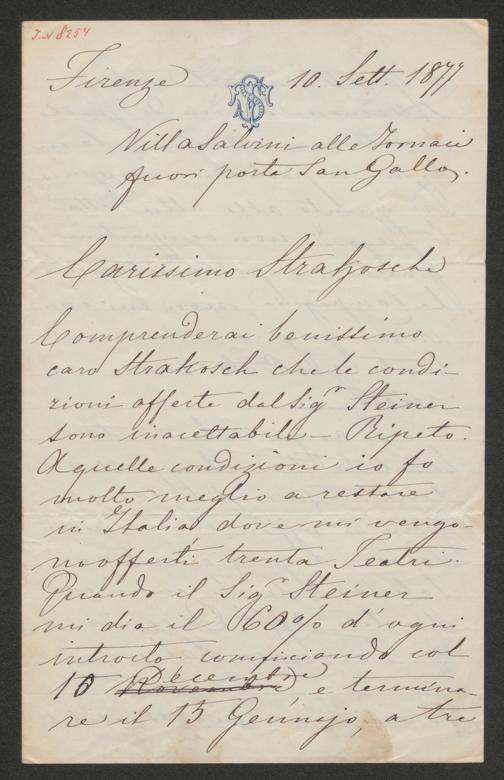 I.N. 8254
Firenze 10. Sett. 1877
Villa Salvini alle Fornaci
fuori porta San Gallo.
Carissimo Strakosche
Comprenderai benissimo
caro Strakosch che le condi-
zioni offerte dal Sigr Steiner
sono inacettabili - Ripeto.
A quelle condizioni io fo
molto meglio a restare
in Italia, dove mi vengo-
no offerti trenta Teatri.
Quando il Sigr Steiner
mi dia il 60% d'ogni
introito cominciando col
Décembre
10 Novembre, e termina-
re il 15 Gennajo, a tre